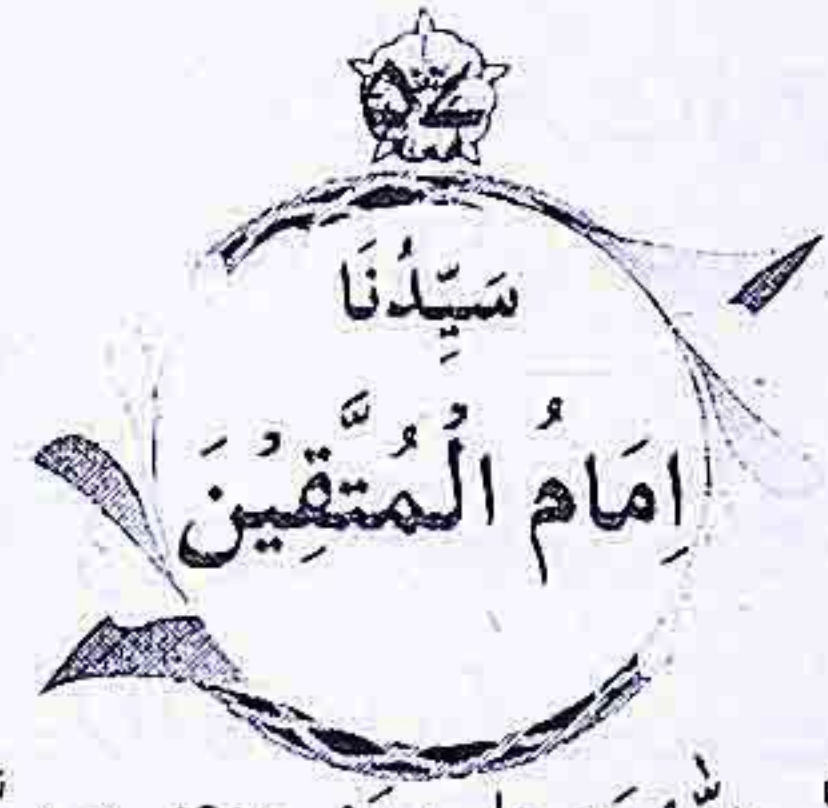 سَيِّدُنَا
اِمَامُ الْمُتَّقِيْنَ